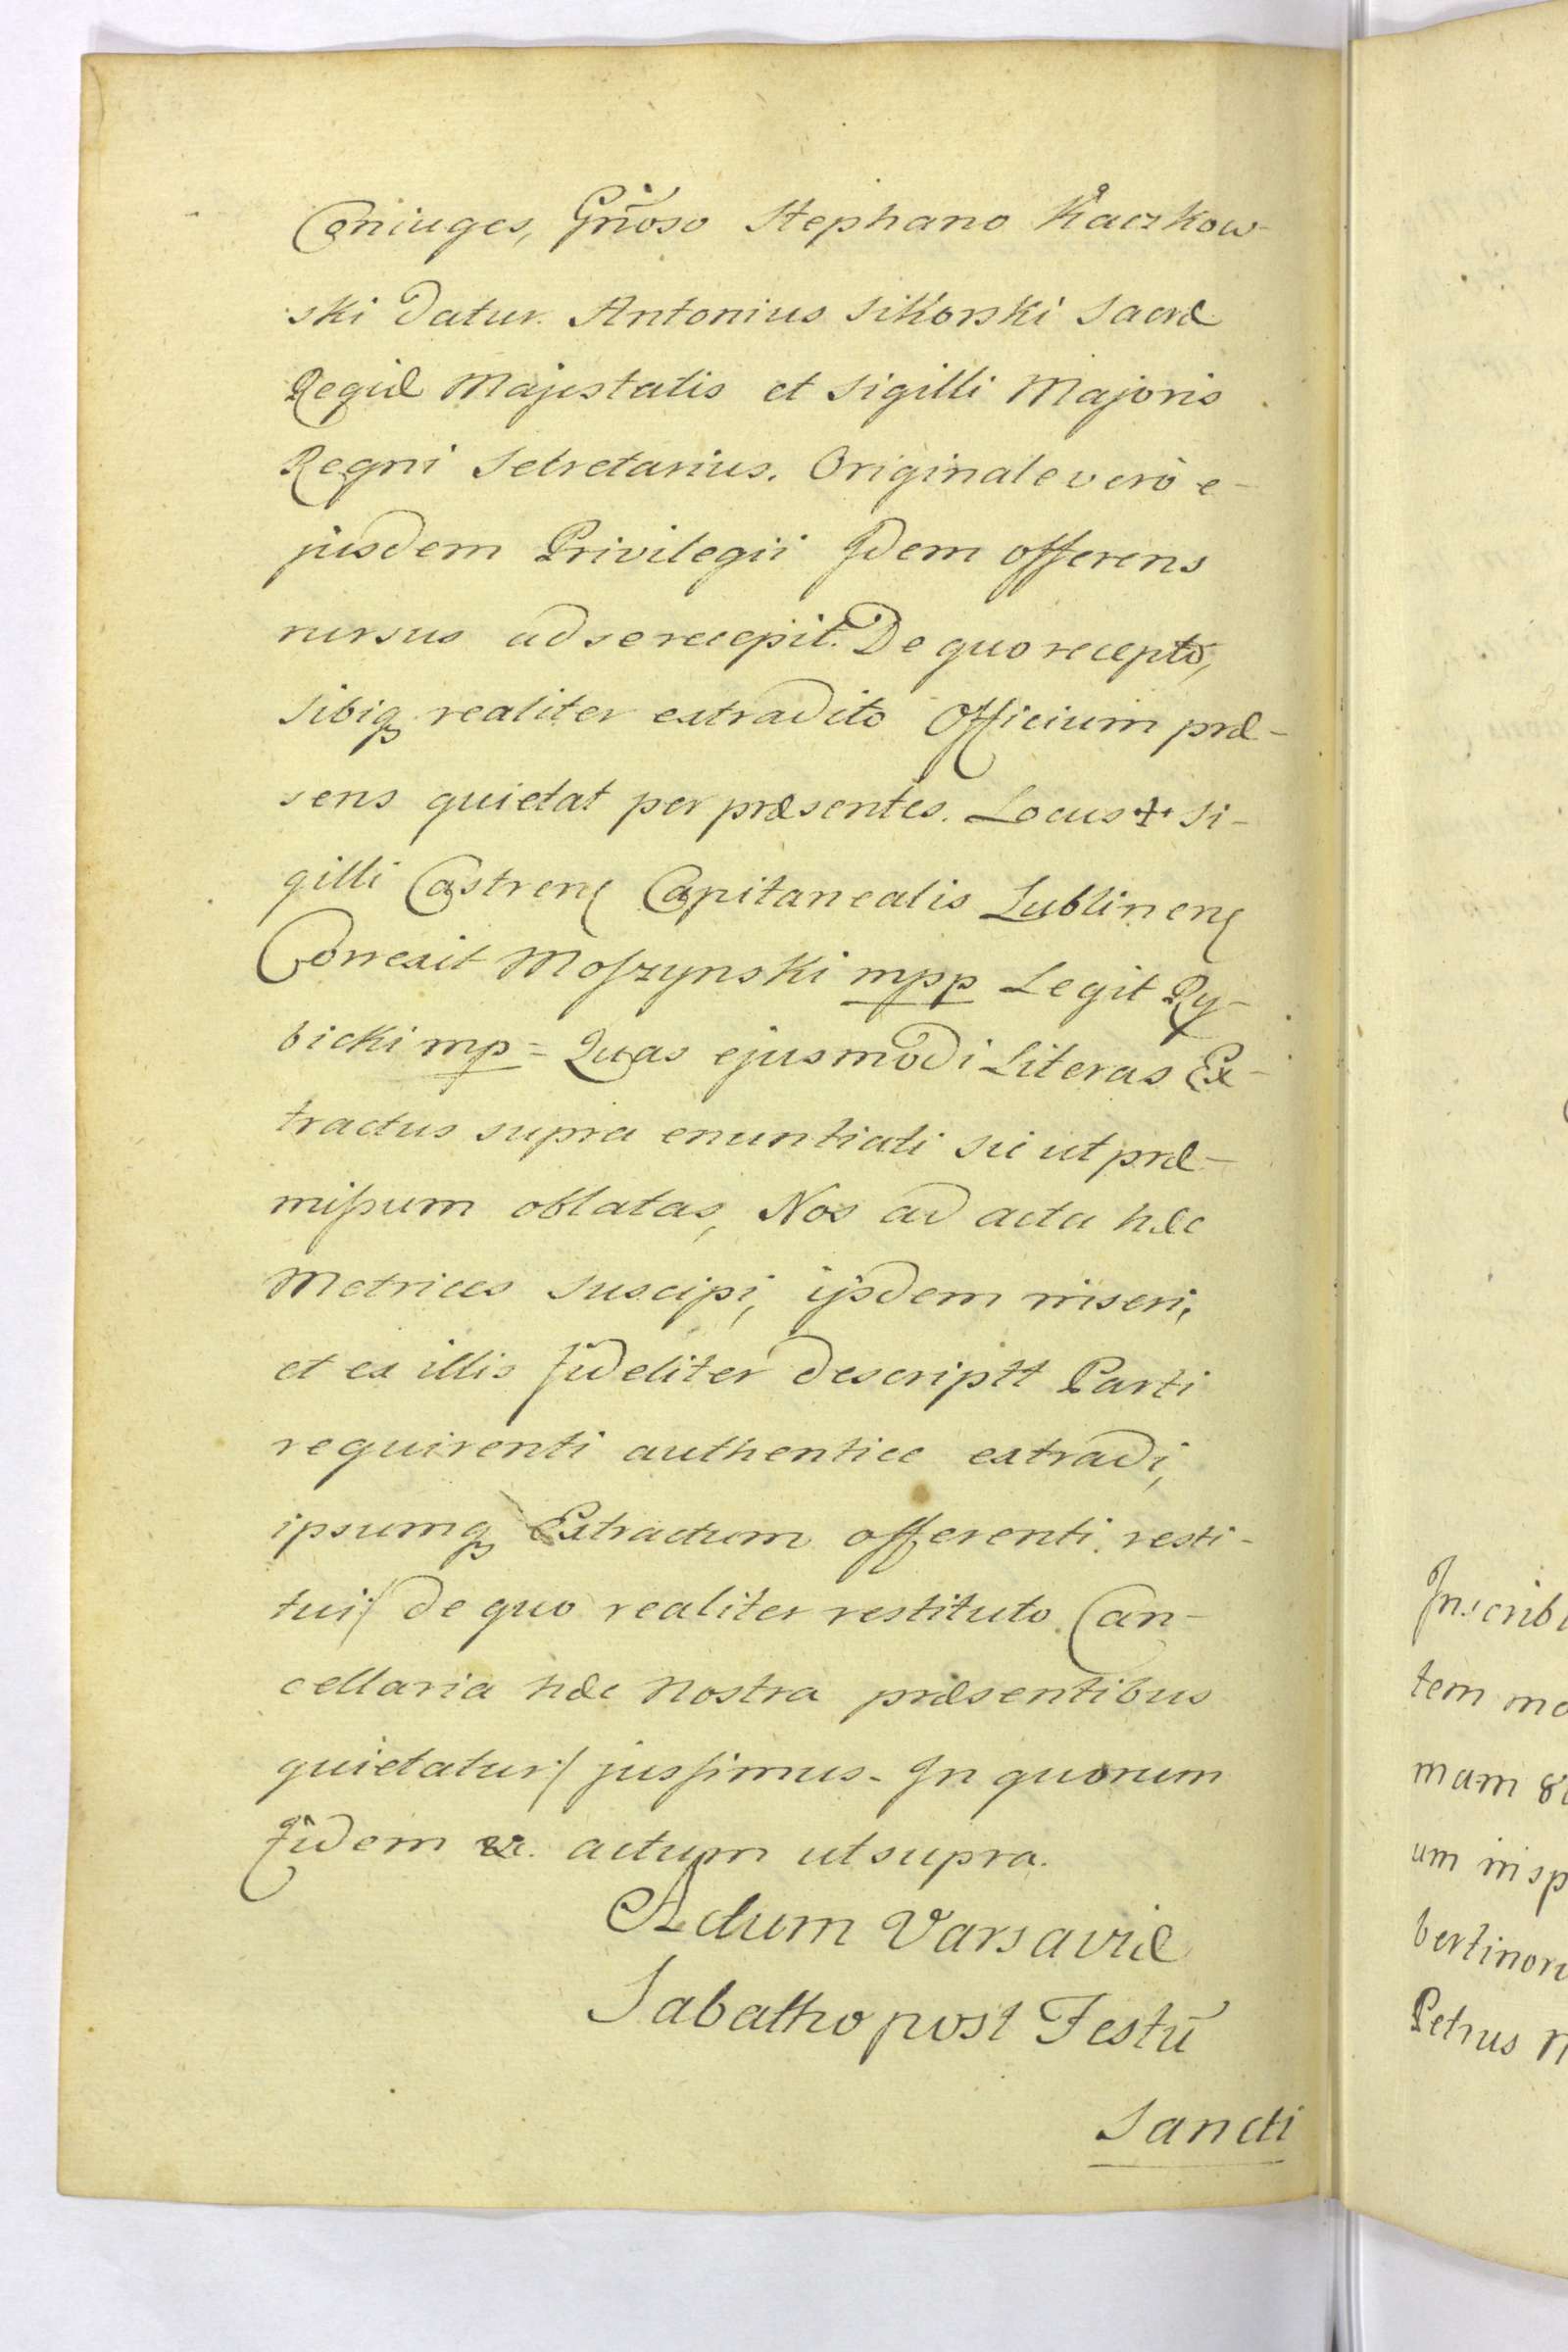 Coniuges, Gn̄oso Stephano Kaczkow-
ski datur. Antonius Sikorski Sacræ
Regiæ Majestatis et Sigilli Majoris
Regni Secretarius. Originale verò e-
jusdem Privilegii Idem offerens
rursus ad se recepit. De quo receptò,
sibiq̨ realiter extradito Officium præ-
sens quietat per præsentes. Locus ✝ Si-
gilli Castren Capitanealis Lublinen
Correxit Moszynski mpp Legit Ry-
bicki mp = Quas ejusmodi Literas Ex-
tractus supra enuntiati sic ut præ-
missum oblatas, Nos ad acta hæc
Metrices suscipi, ijsdem inseri,
et ex illis fideliter descriptt Parti
requirenti authentice extradi,
ipsumq̨ Extractum offerenti resti-
tui/ de quo realiter restituto Can-
cellaria hæc Nostra præsentibus
quietatur/ jussimus. In quorum
Fidem &c. actum ut supra.
Actum Varsaviæ
Sabatho post Festū
Sancti
Inscrib
tem mo
mam
um insp
bertinoru
Petrus